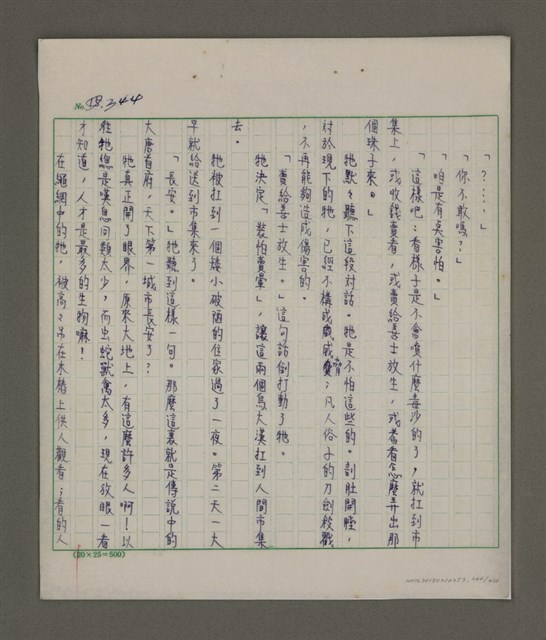 No. 58. 344
「？⋯⋯。」
「你不敢嗎？」
「咱是有臭害怕。」
「這樣吧：看樣子是不會噴什麼毒沙的了，就扛到市
集上，或收錢賣看，或賣給善士放生，或看看怎麼弄出那
個珠子來。」
牠默々聽下這段對話。牠是不怕這些的。剖肚開膛，
對於現下的牠，已經不構成威脅；凡人俗子的刀劍殺戳
，不再能夠造成傷害的。
「賣給善士放生。」這句話倒打動了牠。
牠決定「裝怕賣暈」，讓這兩個烏大漢扛到人間市集
去。
牠被扛到一個矮小破陋的住家過了一夜。第二天一大
早就給送到市集來了。
「長安。」牠聽到這樣一句。那麼這裏就是傳說中的
大唐首府，天下第一城市長安了？
牠真正開了眼界，原來大地上，有這麼許多人啊！以
往牠總是嘆息同類太少，而出蛇獸禽太多，現在放眼一看
才知道，人才是最多的生物嘛！
在繩網中的牠，被高々吊在木樁上供人觀看；看的人
(20×25=500)